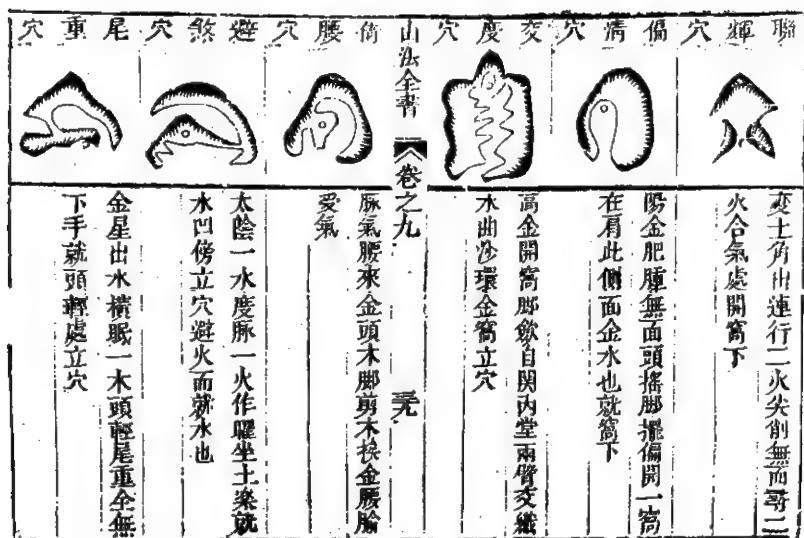 聯輝穴
変土角出連行二火尖削無面尋二
火合氣處開窩下
偏淸穴
陽金肥腫無面頭搖脚擺偏開一窩
在肩此側面金水也就窩下
交度穴
高金開窩脚歛自関內堂兩臂交織
水曲沙環金窩立穴
山法全書
卷之九
倚腰穴
脉氣腰來金頭木脚剪木挨金腰腧
愛氣
避煞穴
太陰一水度脉一火作曜坐土案就
水凹傍立穴避火而就水也
尾重穴
金星出水橫眠一木頭輕尾重全無
下手就頭輕處立穴